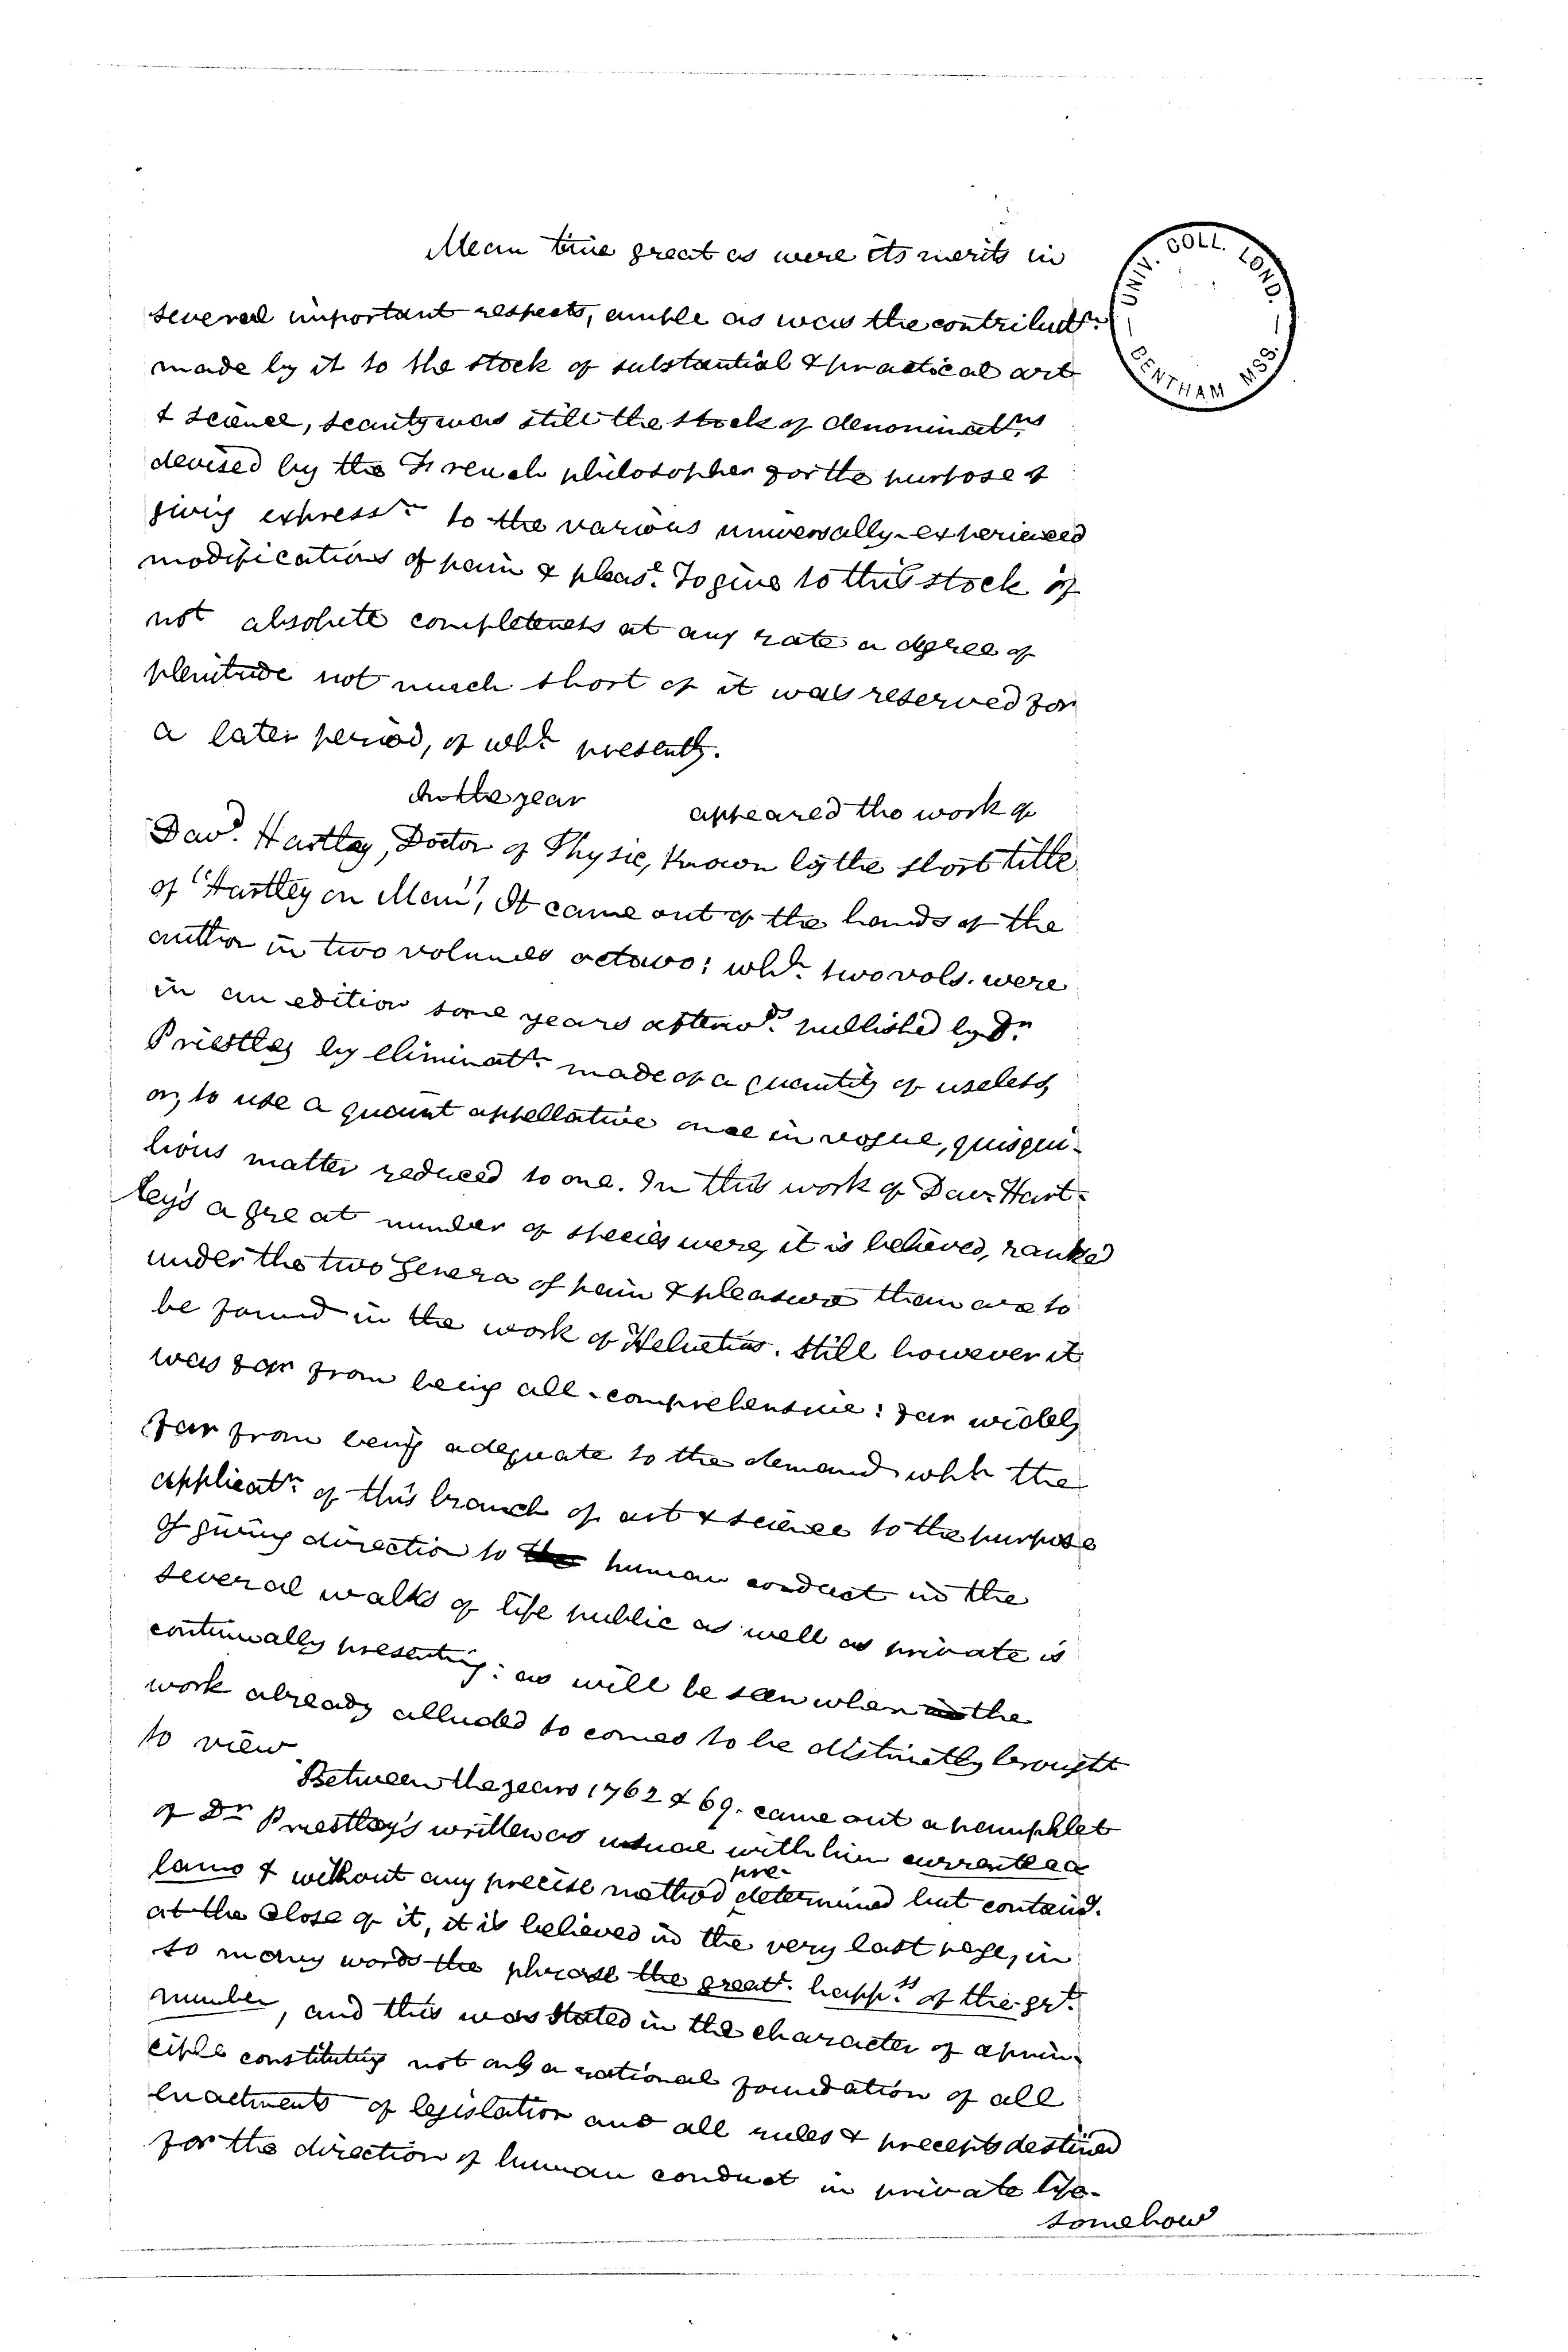 Mean time great as were its merits in
UNIV. COLL. LOND.
BENTHAM MSS.
several important respects, ample as was the contributn.
made by it to the stock of substantial & practical art
& science, scanty was still the stock of denominatns.
devised by the French philosopher for the purpose of
giving expressn. to the various universally-experienced
modifications of pain & please. To give to this stock if
not absolute completeness at any rate a degree of
plenitude not much short of it was reserved for
a later period, of whh. presently.
In the year appeared the work of
Davd. Hartley, Doctor of Physic, known by the short title
of "Hartley on Man", It came out of the hands of the
author in two volumes octavo: whh. two vols. were
in an edition some years afterwds. published by Dr.
Priestley by eliminatn. made of a quantity of useless,
or, to use a quaint appellative once in vogue, quisqui-
lious matter reduced to one. In this work of Dav. Hart-
ley's a great number of species were, it is believed, ranked
under the two Genera of pain & pleasure than are to
be found in the work of Helvetius. Still however it
was far from being all-comprehensive: far widely
far from being adequate to the demand whh the
applicatn. of this branch of art & science to the purpose
of giving direction to the human conduct in the
several walks of life public as well as private is
continually presenting: as will be seen when in the
work already alluded to comes to be distinctly brought
to view.
Between the years 1762 & 69. came out a pamphlet
of Dr Priestley's written as usual with him currente ca
lamo & without any precise method pre-determined but containg.
at the close of it, it is believed in the very last page, in
so many words the phrase the greatt. happss. of the grt.
number, and this was stated in the character of a prin-
ciple constituting not only a rational foundation of all
enactments of legislation and all rules & precepts destined
for the direction of human conduct in private life.
somehow